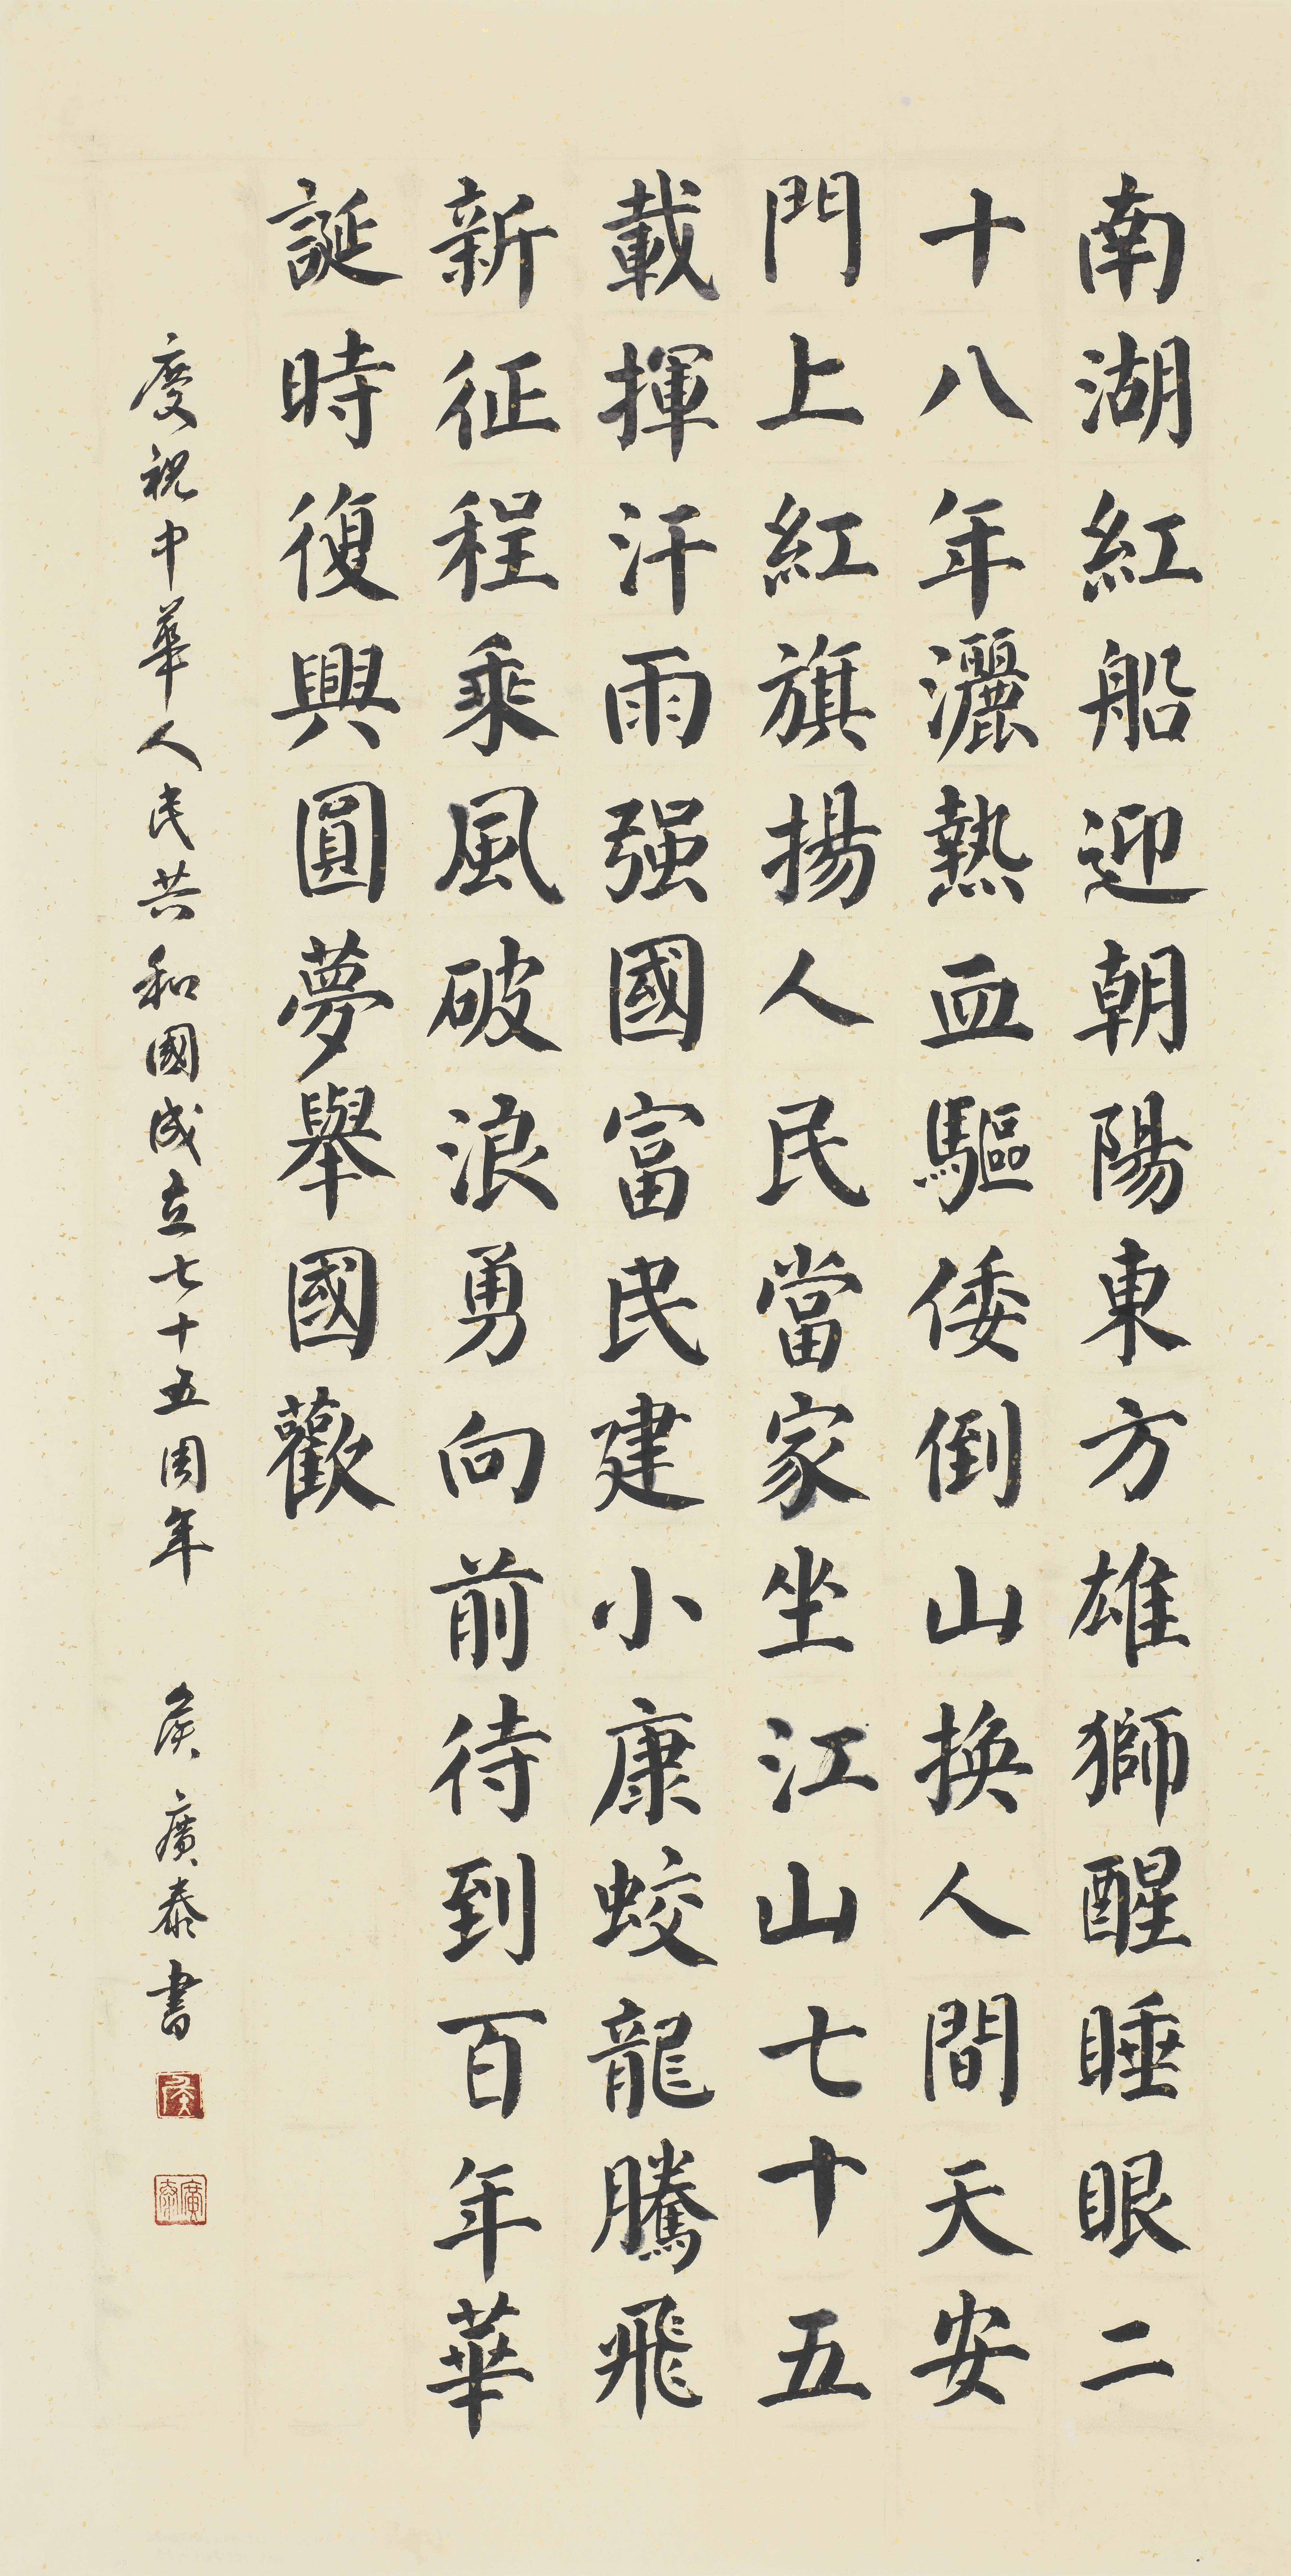 南湖紅船迎朝陽東方雄獅醒睡眼二
十八年灑熱血驅倭倒山換人間天安
門上紅旗揚人民當家坐江山七十五
載揮汗雨强國富民建小康蛟龍騰飛
新征程乘風破浪勇向前待到百年華
誕時復興圓夢舉國歡
慶祝中華人民共和國成立七十五周年 侯廣泰書
侯
廣泰